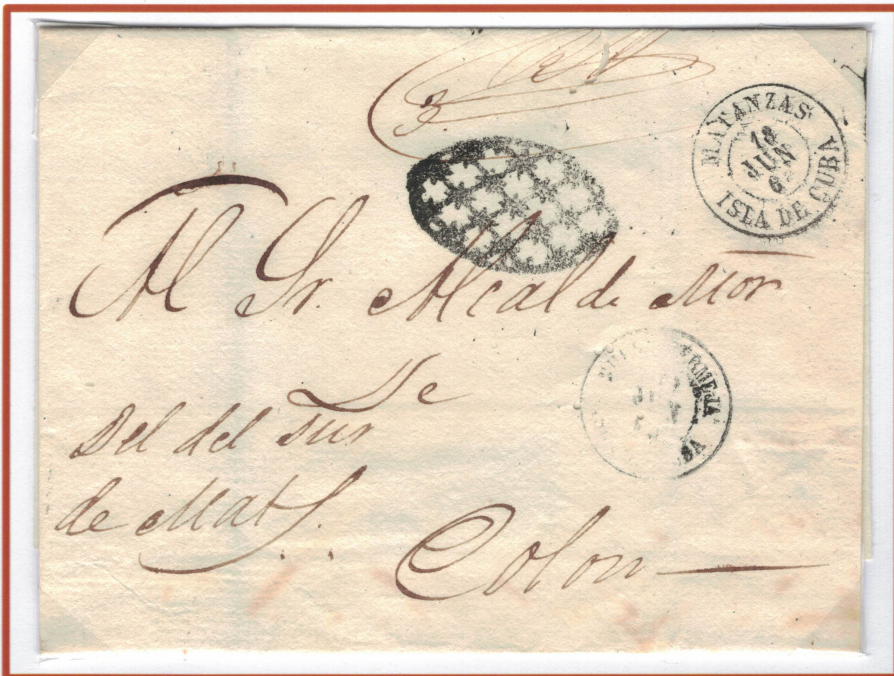 3.
MATANZAS
18
JUN
6
ISLA DE CUBA
Al Sr. Alcalde Mor
de
Del del Sur
de Mat s.
Colon